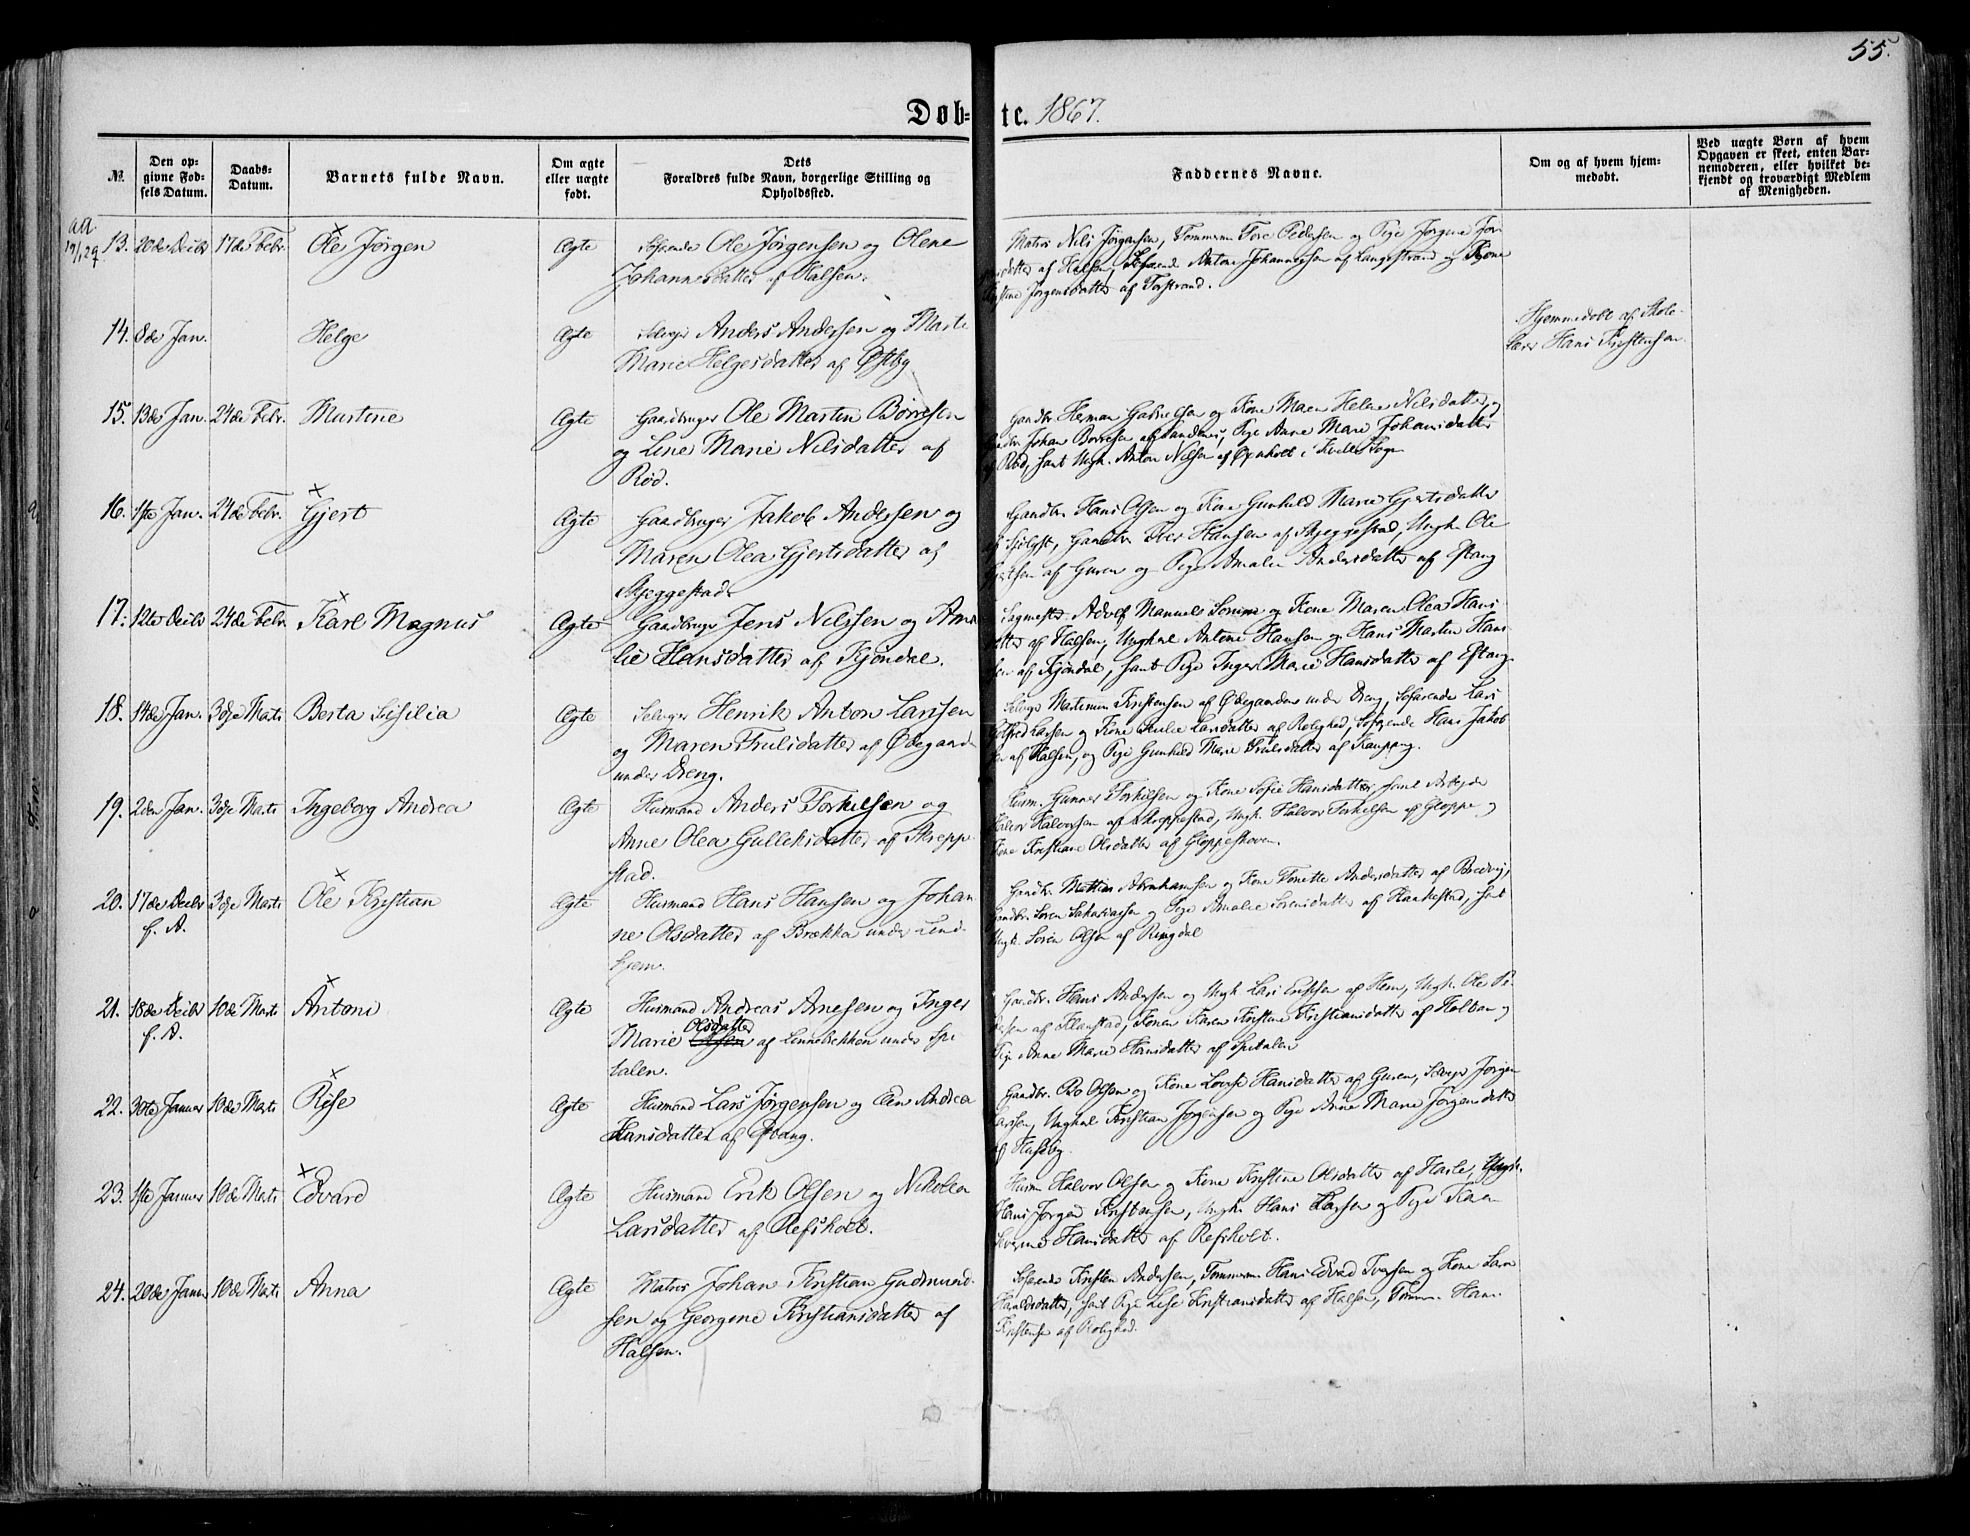 55.
Døb- te. 1867.
№.
Den op-
givne Fød-
sels Datum.
Daabs-
Datum.
Barnets fulde Navn.
Om ægte
eller uægte
født.
Dets
Forældres fulde Navn, borgerlige Stilling og
Opholdssted.
Faddernes Navne.
Om og af hvem hjem-
medøbt.
Ved uægte Børn af hvem
Opgaven er skeet, enten Bar-
nemoderen, eller hvilket be-
kjendt og troværdigt Medlem
af Menigheden.
13. 20de Decbr 17de Febr. Ole Jørgen Ægte Søfarende Ole Jørgensen og Olene
Johannesdatter af Halsen.
Matros Nils Jørgensen, Tømmerm Tore Pedersen og Pige Jørgine
datter af Halsen, Søfarende Anton Johannesen af Langestrand og Kone
Jørgensdatter af Torstrand.
14. 8de Jan. Helge Ægte Selveier Anders Andersen og Marte
Marie Helgesdatter af Østby
Hjemmedøbt af Skole-
lærer Hans Kristensen
15. 13de Jan. 24de Febr. Martine Ægte Gaardbruger Ole Martin Børresen
og Line Marie Nilsdatter af
Rød.
Gaardbr. Herman Gabrielsen og Kone Maren Helene Nilsdatter, og
Johan Børresen af Sandenes, Pige Anne Marie Johansdatter
af Rød, samt Ungk. Anton Nilsen af i Kvelle Sogn
16. 1ste Jan. 24de Febr. Gjert Ægte Gaardbruger Jakob Andersen og
Maren Olea Gjertsdatter af
Skjeggestad.
Gaardbr. Hans Olsen og Kone Gunhild Marie Gjertsdatter
af Sjølyst, Gaardbr. Peer Hansen af Skjeggestad, Ungk. Ole
Gjertsen af Guren og Pige Amalie Andersdatter af Østang
17. 12te Decbr 24de Febr. Karl Magnus Ægte Gaardbruger Jens Nilssen og Ama-
lie Hansdatter af Kjøndal.
Sagmester Adolf Manuel Sørum og Kone Maren Olea Hans
datter af Halsen, Ungkarl Antone Hansen og Hans Martin Han-
sen af Kjøndal, samt Pige Inger Marie Hansdatter af Østang
18. 14de Jan. 3dje Marts Berta Sisilia Ægte Selveier Henrik Anton Larssen
og Maren Trulsdatter af Ødegaard
under Dreng.
Selveier Martinius Kristensen af Ødegaarden under Dreng, Søfarende Lars
Larsen og Kone Julie Larsdatter af Rolighed, Søfarende Hans Jakob
af Halsen, og Pige Gunhild Marie Trulsdatter af Kaupang.
19. 2den Jan. 3dje Marts Ingeborg Andrea Ægte Husmand Anders Torkelsen og
Anne Olea Gulliksdatter af Skreppe-
stad.
Husm. Gunner Torkilsen og Kone Sofie Hansdatter, samt Arbeider
Halvor Halvorsen af Skreppestad, Ungk. Halvor Torkilsen af Gloppe og
Kone Kristiane Olsdatter af Gloppeskoven.
20. 17de Decbr 3dje Marts Ole Kristian Ægte Husmand Hans Hansen og Johan-
f. A.
ne Olsdatter af Brækka under Lind-
hjem.
Gaardbr. Mattias Abrahamsen og Kone Tonette Andersdatter af Bredvig,
Gaardbr. Søren Sakariasen og Pige Amalie Sørensdatter af Hankestad, samt
Ungk. Søren Olsen af Ringdal
21. 18de Decbr 10de Marts Antoni Ægte Husmand Andreas Arnesen og Inger
f. A.
Marie Olsdatter af Linnebekken under Spi-
talen.
Gaardbr. Hans Andersen og Ungk. Lars Eriksen af Hem, Ungk. Ole
af Klaustad, Konen Karen Kristine Kristiansdatter af Holtan og
Pige Anne Marie Hansdatter af Spitalen
22. 30te Januar 10de Marts Rise Ægte Husmand Lars Jørgensen og Elen Andrea
Hansdatter af Østang.
Gaardbr. Bo Olsen og Kone Lovise Hansdatter af Guren, Selveier Jørgen
Larsen, Ungkarl Kristian Jørgensen og Pige Anne Marie Jørgensdatter
af Huseby.
23. 1ste Januar 10de Marts Edvard Ægte Husmand Erik Olsen og Nikolea
Larsdatter af Refsholt.
Husm Halvor Olsen og Kone Kristine Olsdatter af Harle, Ungk.
Hans Jørgen Kristensen, Ungk. Hans Larsen og Pige Karen
Hansdatter af Refsholt.
24. 20de Januar 10de Marts Anna Ægte Matros Johan Kristian Gudmund-
sen og Georgine Kristiansdatter af
Halsen.
Søfarende Kristen Andersen, Tømmerm Hans Edvard Iversen og Kone Lara
Haraldsdatter, samt Pige Lise Kristiansdatter af Halsen, Tømm. Hans
Kristensen af Rolighed.